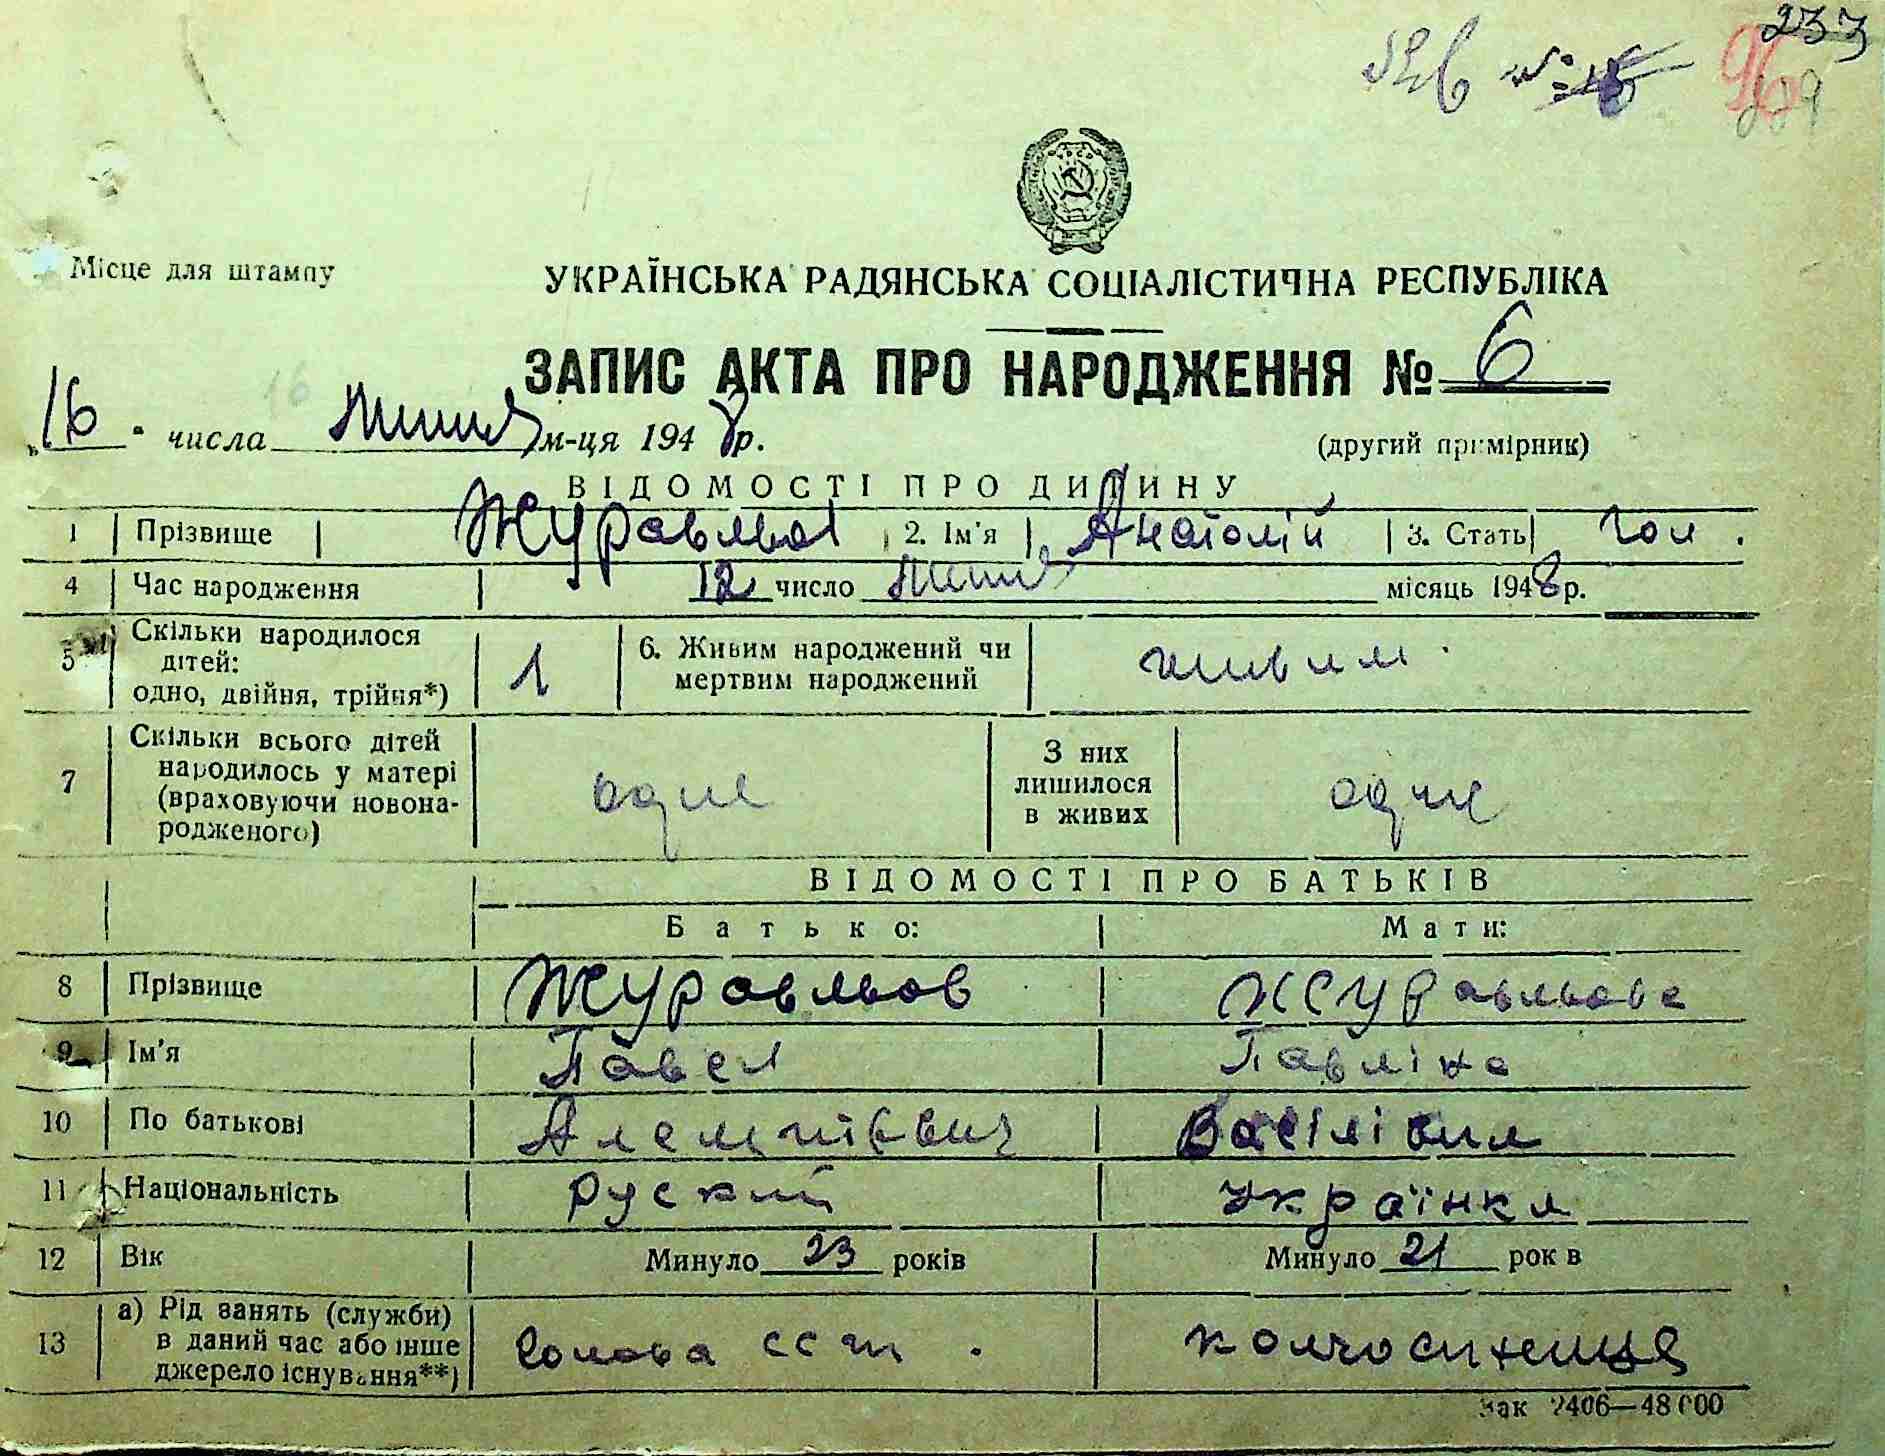 233
96
Місце для штампу
УКРАЇНСЬКА РАДЯНСЬКА СОЦІАЛІСТИЧНА РЕСПУБЛІКА
ЗАПИС АКТА ПРО НАРОДЖЕННЯ № 6
„16" числа липня м-ця 1948 р.
(другий примірник)
ВІДОМОСТІ ПРО ДИТИНУ
1 Прізвище Журавльов 2. Ім'я Анатолій 3. Стать чол.
4 Час народження 12 число липня місяць 1948 р.
5 Скільки народилося дітей: одно, двійня, трійня*) 1 6. Живим народжений чи мертвим народжений живим.
7 Скільки всього дітей народилось у матері (враховуючи новонародженого) одне З них лишилося в живих одне
ВІДОМОСТІ ПРО БАТЬКІВ
Батько: Мати:
8 Прізвище Журавльов Журавльова
9 Ім'я Павел Павліна
10 По батькові
11 Національність Руский Українка
12 Вік Минуло 23 років Минуло 21 років
13 а) Рід занять (служби) в даний час або інше джерело існування**) Голова колгоспниця
Зак 2406—48000